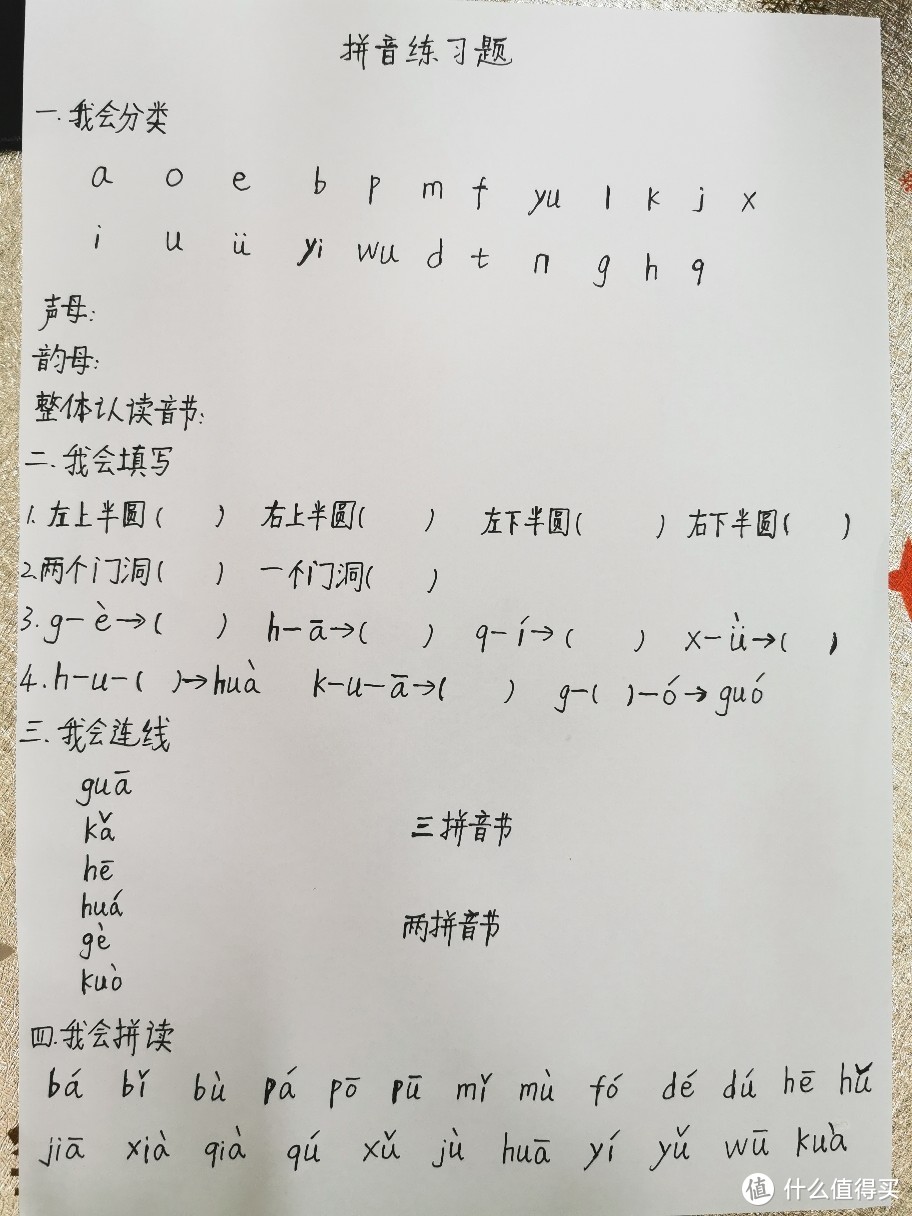 拼音练习题
一.我会分类
a o e b p m f yu l k j x
i u ü yi wu d t n g h q
声母:
韵母:
整体认读音节:
二.我会填写
1.左上半圆( ) 右上半圆( ) 左下半圆( ) 右下半圆( )
2.两个门洞( ) 一个门洞( )
3.g-è→( ) h-ā→( ) q-í→( ) x-ǜ→( )
4.h-u-( )→huà k-u-ā→( ) g-( )-ó→guó
三.我会连线
guā
kǎ
三拼音节
hē
huá
两拼音节
gè
kuò
四.我会拼读
bá bǐ bù pá pō pū mǐ mù fó dé dú hē hǔ
jiā xià qià qú xǔ jù huā yí yǔ wū kuà
值 什么值得买